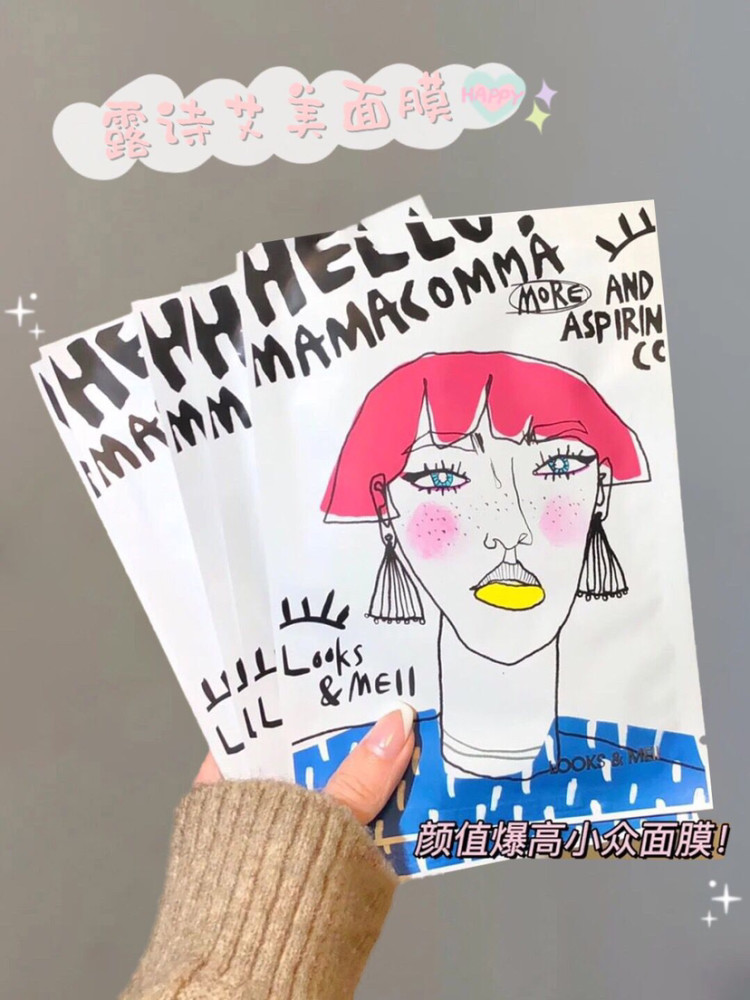 露诗艾美面膜
HAPPY
HELLO,
MAMACOMMA
MORE AND
ASPIRIN
CC
H
MA
H
MM
Looks
& MEll
LIL
LOOKS & MEI
颜值爆高小众面膜!